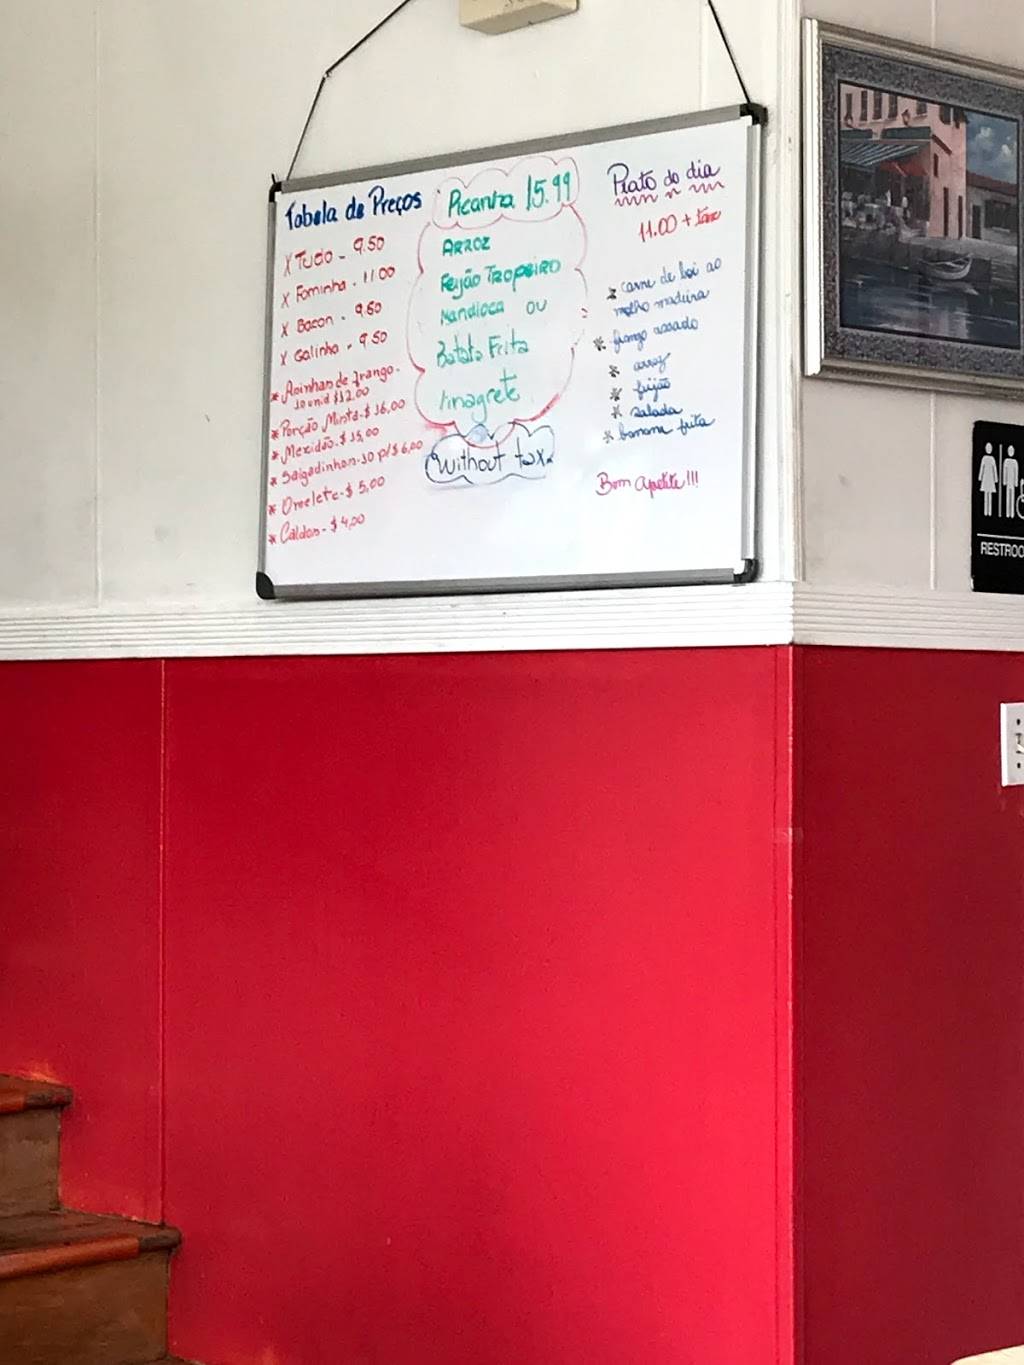 Tabela de Preços
X Tudo - 9.50
X Fominha - 11.00
X Bacon - 9.50
X Galinha - 9.50
* Asinhas de frango -
10 unid $12.00
* Porção Mista - $ 16,00
* Mexidão - $ 15,00
* Salgadinhos - 10 p/ $ 6,00
* Omelete - $ 5,00
* Caldos - $ 4,00
Picanha 15.99
Arroz
Feijão Tropeiro
Mandioca ou
Batata Frita
Vinagrete
Without tax.
Prato do dia
11.00 + tax
* carne de boi ao
molho madeira
* frango assado
* arroz
* feijão
* salada
* banana frita
Bom apetite!!!